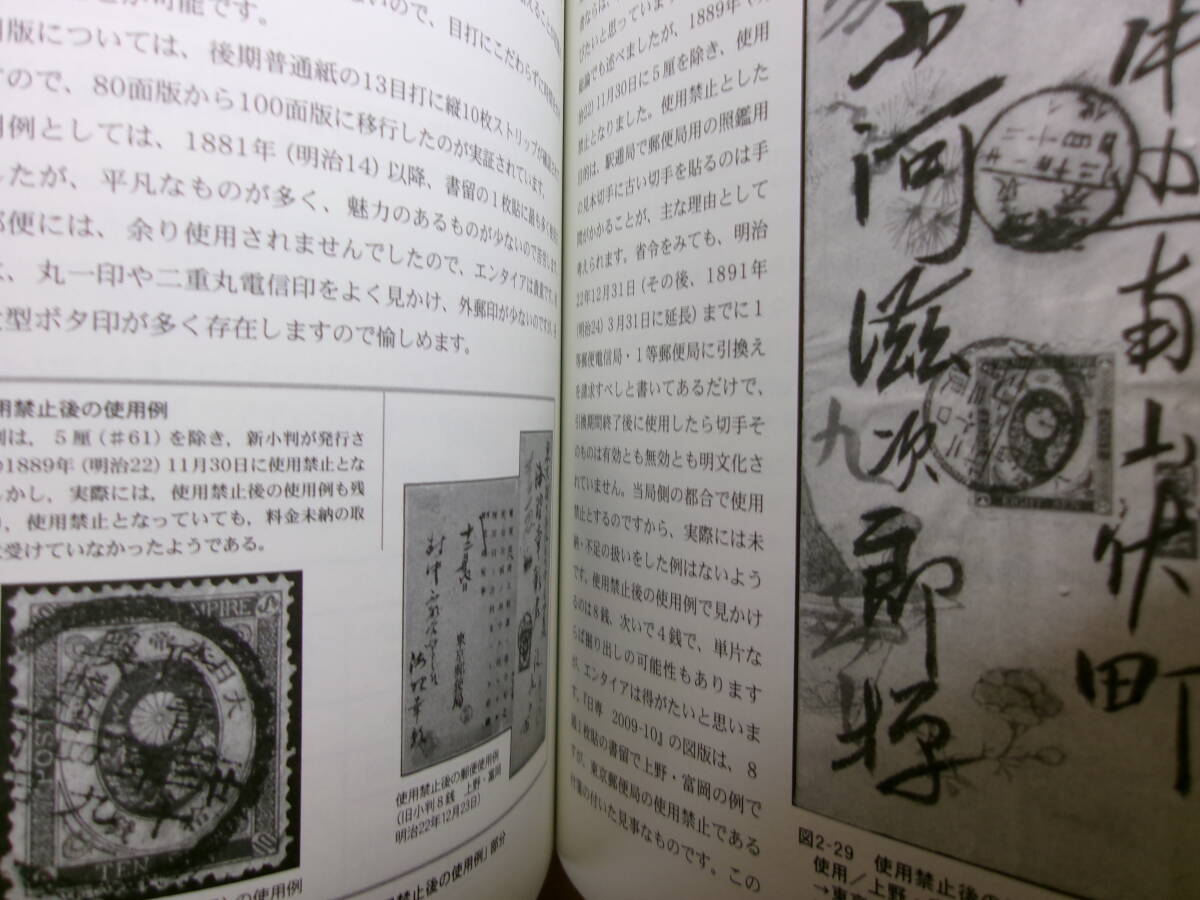 とが可能です。
ないので、目打にこだわらずに
版については、後期普通紙の13目打に縦10枚ストリップが
すので、80面版から100面版に移行したのが実証されています。
用例としては、1881年(明治14)以降、書留の1枚貼に最も多く
したが、平凡なものが多く、魅力のあるものが少ないので
郵便には、余り使用されませんでしたので、エンタイアは
、丸一印や二重丸電信印をよく見かけ、外郵印が少ないのですが、
型ボタ印が多く存在しますので愉しめます。
用禁止後の使用例
例は、5厘(#61)を除き、新小判が発行さ
の1889年(明治22)11月30日に使用禁止とな
かし、実際には、使用禁止後の使用例も残
、使用禁止となっていても、料金未納の取
受けていなかったようである。
EMPIRE
大日本
POST
TEN
の使用例
使用禁止後の郵便使用例
(旧小判8銭 上野・富岡
明治22年12月23日)
使用例」部分
びたいと思っています
総論でも述べましたが、1889年(明
治22)11月30日に5厘を除き、使用
禁止となりました。使用禁止とした
目的は、駅逓局で郵便局用の照鑑用
の見本切手に古い切手を貼るのは手
間がかかることが、主な理由として
考えられます。省令をみても、明治
22年12月31日(その後、1891年
(明治24)3月31日に延長)までに1
等郵便電信局・1等郵便局に引換え
を請求すべしと書いてあるだけで、
引換期間終了後に使用したら切手そ
のものは有効とも無効とも明文化さ
れていません。当局側の都合で使用
禁止とするのですから、実際には未
納・不足の扱いをした例はないよう
です。使用禁止後の使用例で見かけ
るのは8銭、次いで4銭で、単片な
らば掘り出しの可能性もあります
が、エンタイアは得がたいと思いま
す。『日専 2009-10』の図版は、8
銭1枚貼の書留で上野・富岡の例で
すが、東京郵便局の使用禁止である
付箋の付いた見事なものです。この
南山伏町
河滋次郎
九
図2-29 使用禁止後の
使用/上野・
→東京